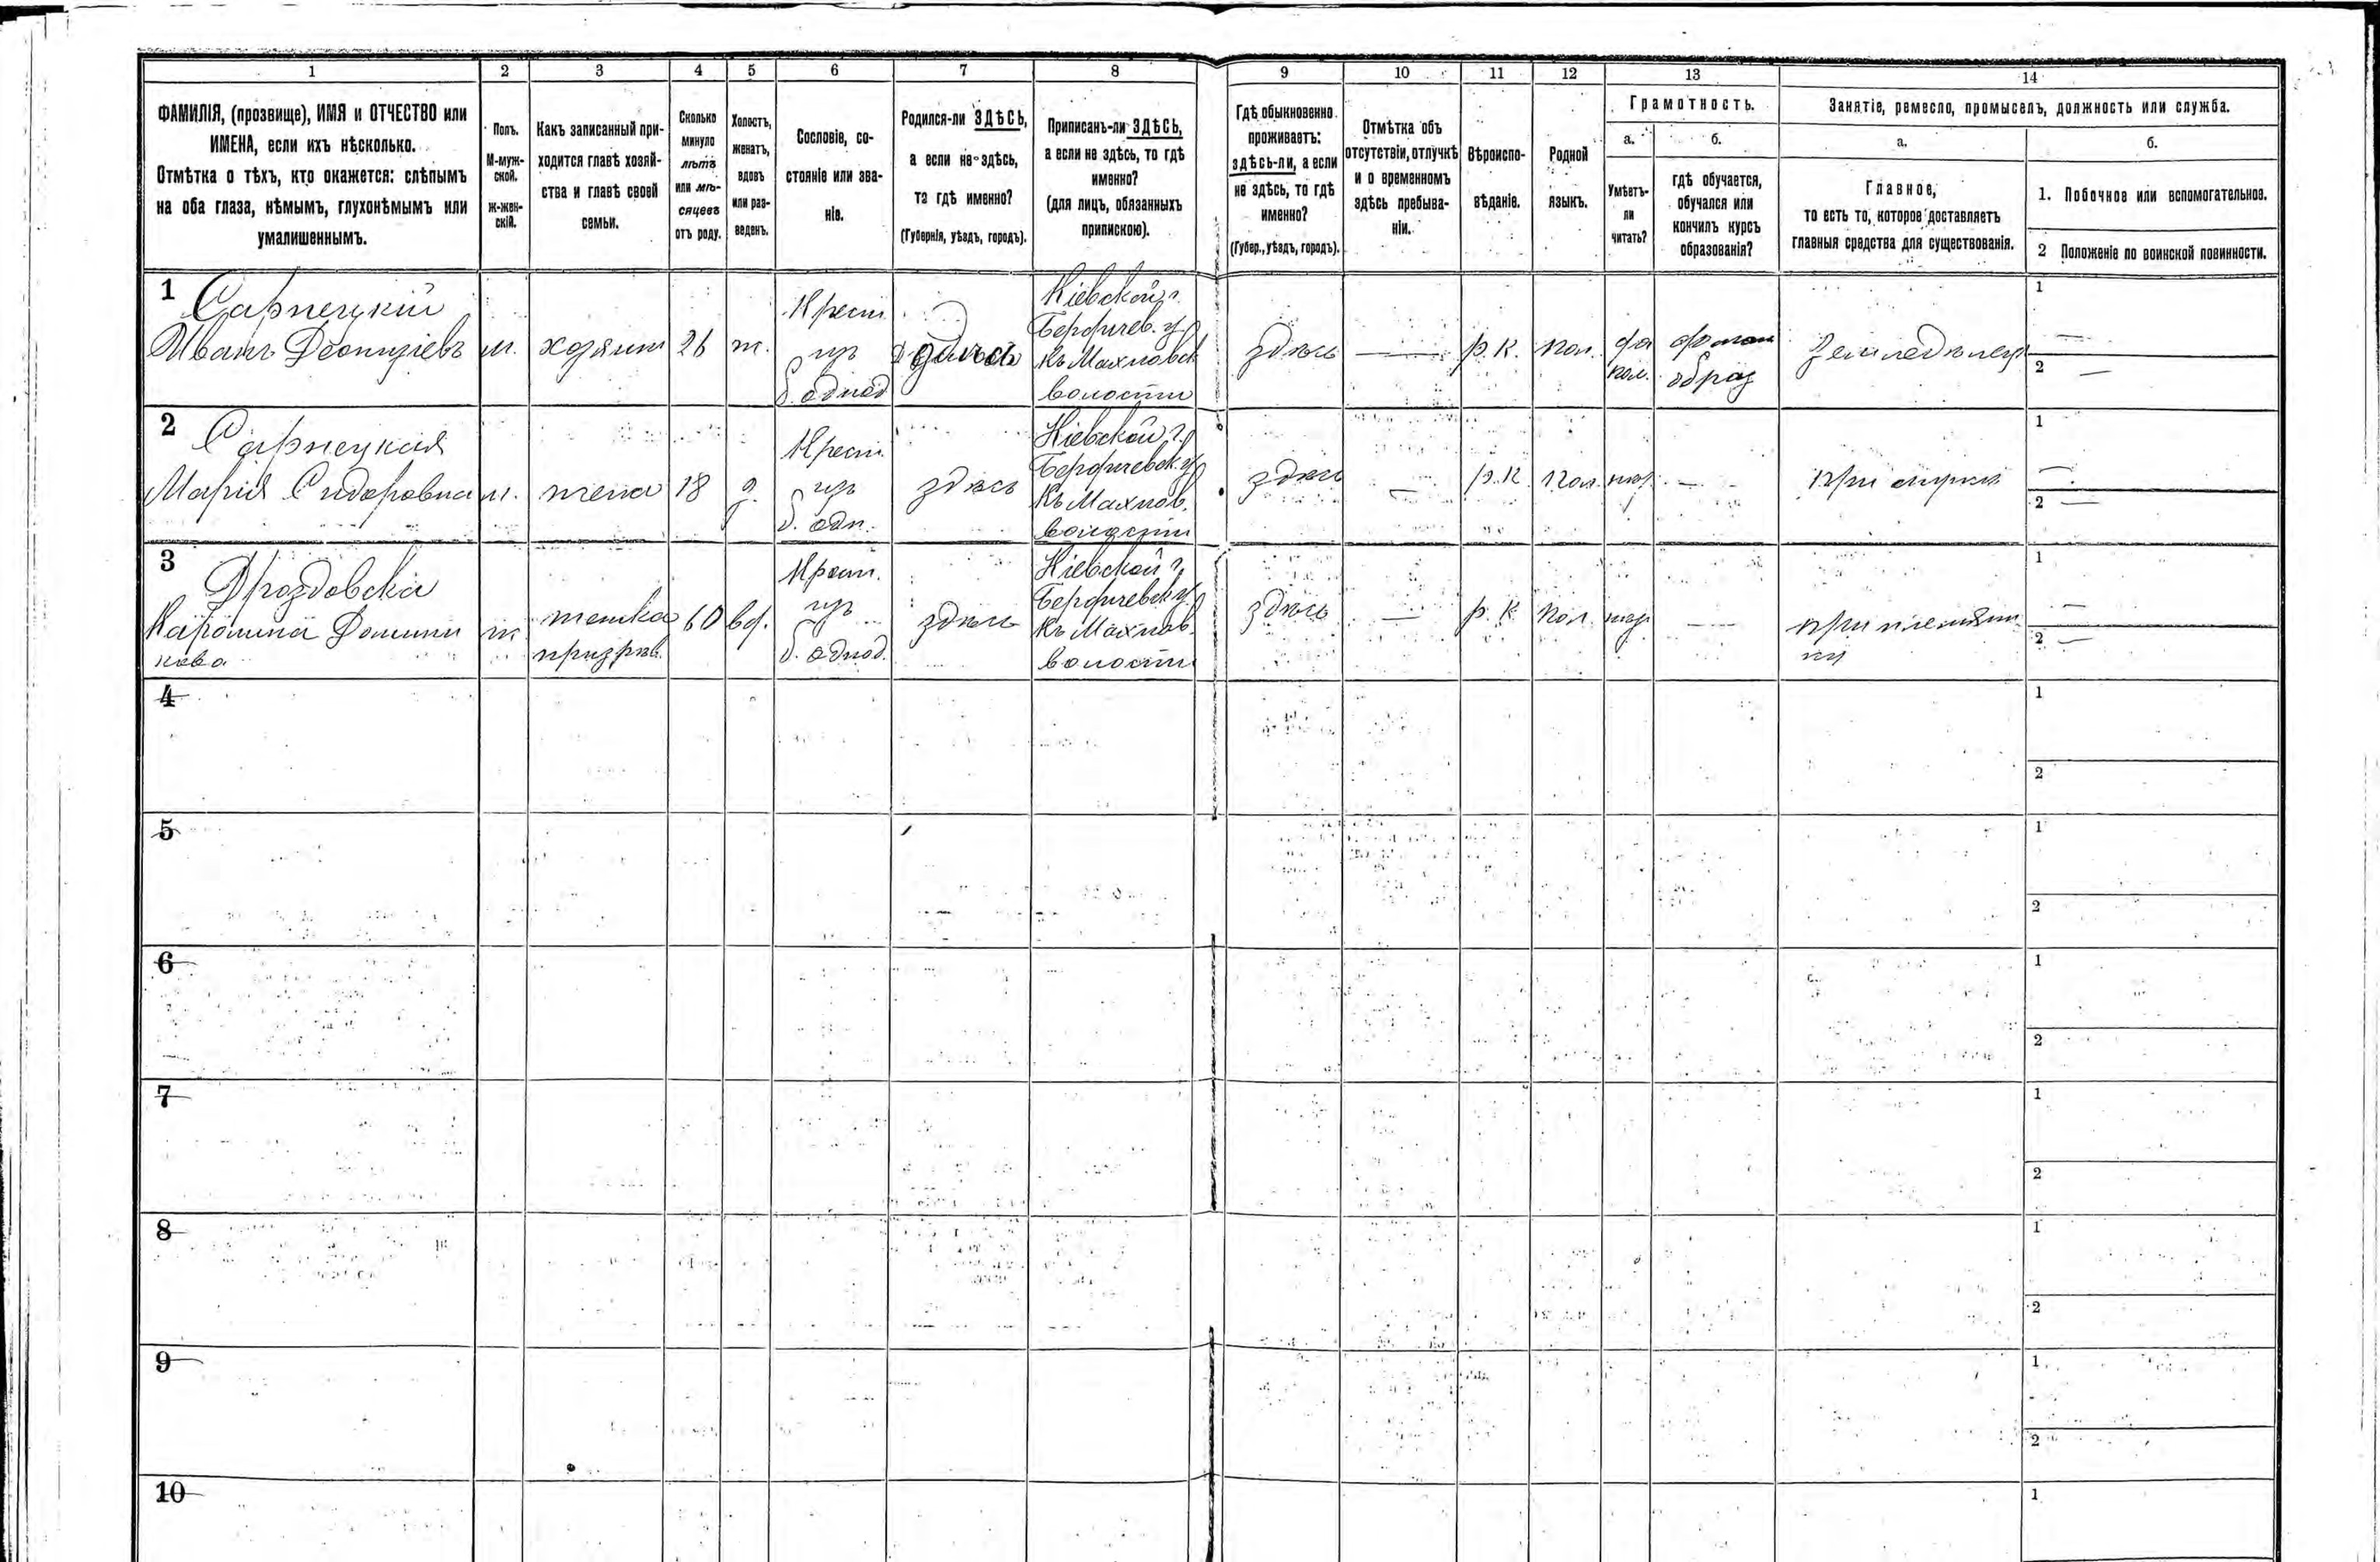 1 2 3 4 5 6 7 8 9 10 11 12 13 14
ФАМИЛІЯ, (прозвище), ИМЯ и ОТЧЕСТВО или
ИМЕНА, если ихъ нѣсколько.
Отмѣтка о тѣхъ, кто окажется: слѣпымъ
на оба глаза, нѣмымъ, глухонѣмымъ или
умалишеннымъ.
Полъ.
М-муж-
ской.
Ж-жен-
скій.
Какъ записанный при-
ходится главѣ хозяй-
ства и главѣ своей
семьи.
Сколько
минуло
лѣтъ
или мѣ-
сяцевъ
отъ роду.
Холостъ,
женатъ,
вдовъ
или раз-
веденъ.
Сословіе, со-
стояніе или зва-
ніе.
Родился-ли ЗДѢСЬ,
а если не здѣсь,
то гдѣ именно?
(Губернія, уѣздъ, городъ).
Приписанъ-ли ЗДѢСЬ,
а если не здѣсь, то гдѣ
именно?
(для лицъ, обязанныхъ
припискою).
Гдѣ обыкновенно
проживаетъ:
здѣсь-ли, а если
не здѣсь, то гдѣ
именно?
(Губер., уѣздъ, городъ).
Отмѣтка объ
отсутствіи, отлучкѣ
и о временномъ
здѣсь пребыва-
ніи.
Вѣроиспо-
вѣданіе.
Родной
языкъ.
Грамотность.
а.
Умѣетъ-
ли
читать?
б.
гдѣ обучается,
обучался или
кончилъ курсъ
образованія?
Занятіе, ремесло, промыселъ, должность или служба.
а.
Главное,
то есть то, которое доставляетъ
главныя средства для существованія.
б.
1. Побочное или вспомогательное.
2 Положеніе по воинской повинности.
1
Сарнецкій
Иванъ Деонизіевъ
м.
хозяин
26
ж.
Крест
изъ
б. однод
здѣсь
Кіевской г.
Бердичев. у
Къ Махновск
волости
здѣсь
—
р. К.
пол.
да
пол.
домаш
образ
Земледѣлец
1 —
2 —
2
Сарнецкая
Марія Сидоровна
жена
18
Крест.
изъ
б. одн.
здѣсь
Кіевской г.
Бердичевск. у
Къ Махнов.
волости
здѣсь
—
р. К.
пол.
—
При мужѣ
1 —
2 —
3
Дроздовска
Каролина Домини
кова
ж
призрѣв.
60
вд.
Крест.
изъ
б. однод.
здѣсь
Кіевской г.
Бердичевск у.
Къ Махнов.
волости
здѣсь
—
р. К
пол.
—
при племянни
ки
1 —
2 —
4
1
2
5
1
2
6
1
2
7
1
2
8
1
2
9
1
2
10
1